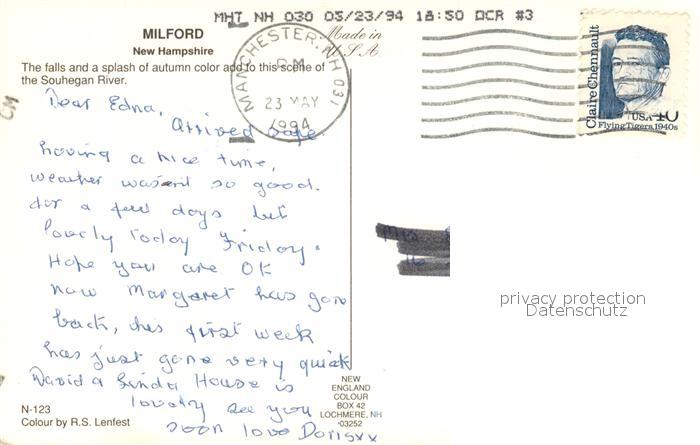 MHT NH 030 05/23/94 18:50 DCR #3
MILFORD
New Hampshire
The falls and a splash of autumn color add to this scene of
the Souhegan River.
Made in
U.S.A
MANCHESTER, NH 031
PM
23 MAY
1994
Claire Chennault
USA 40
Flying Tigers, 1940s
CM
Dear Edna,
Arrived safe
having a nice time,
weather wasent so good.
for a few days but
lovely today Friday.
Hope you are OK
now Margaret has gone
back, this first week
has just gone very quick
David & Linda House is
lovely see you
soon love Dorisxx
privacy protection
Datenschutz
N-123
Colour by R.S. Lenfest
NEW
ENGLAND
COLOUR
BOX 42
LOCHMERE, NH
03252